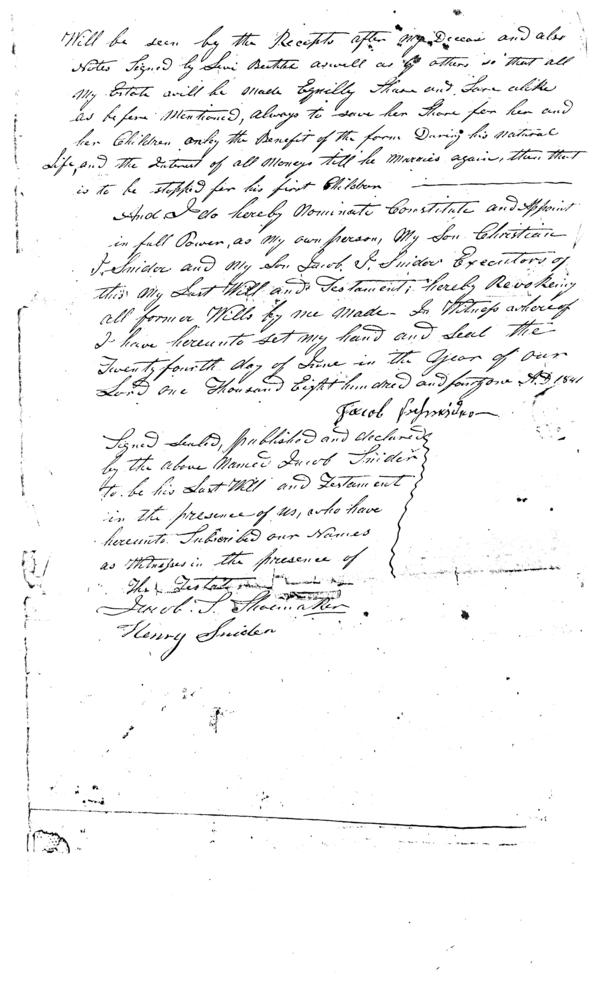 Will be seen by the Receipts after my Decease and also
Notes Signed by Levi as well as of others so that all
My Estate will be made Equilly Share and Sare alike
as before Mentioned, always to save her Share for her and
her Children only the Benefit of the form During his natural
Life, and the Interest of all Moneys till he Marries again, then that
is to be stopped for his first Children
And I do hereby Nominate Constitute and Appoint
in full Power, as my own person, My Son Christian
J. Snider and my Son Jacob. J. Snider Executors of
this My Last Will and Testament; hereby Revokeing
all former Wills by me Made. In Witness whereof
I have hereunto set my hand and Seal the
Twenty fourth day of June in the Year of our
Lord one Thousand Eight hundred and fortyone A.D. 1841
Jacob
Signed sealed, published and declared
by the above Named Jacob Snider
to be his Last Will and Testament
in the presence of us, who have
hereunto Subscribed our Names
as Witnesses in the presence of
The Testator
Jacob. S. Shoemaker
Henry Snider